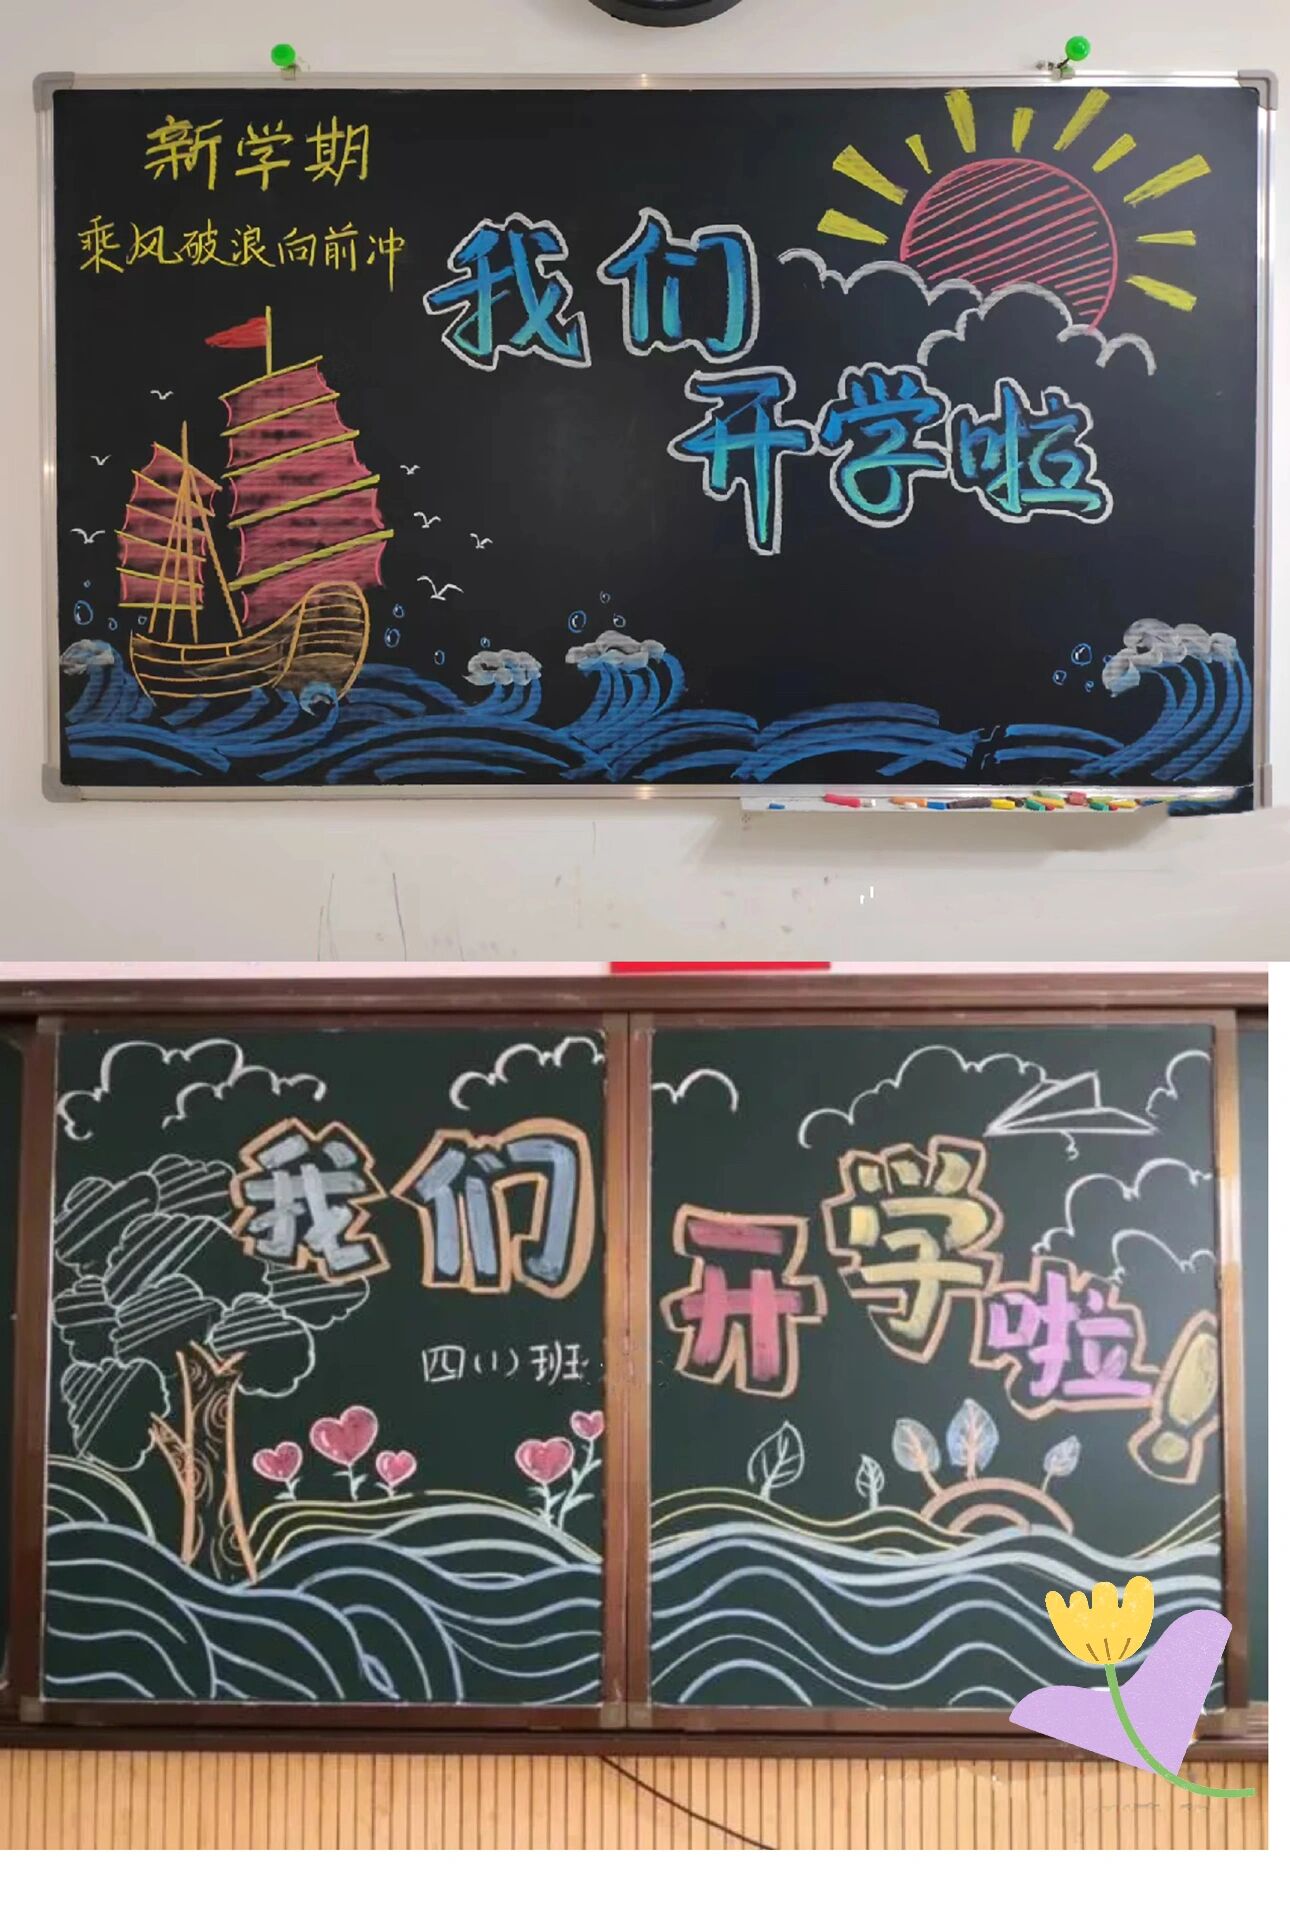 新学期
乘风破浪向前冲
我们
开学啦
我们
四(1)班
开学啦!